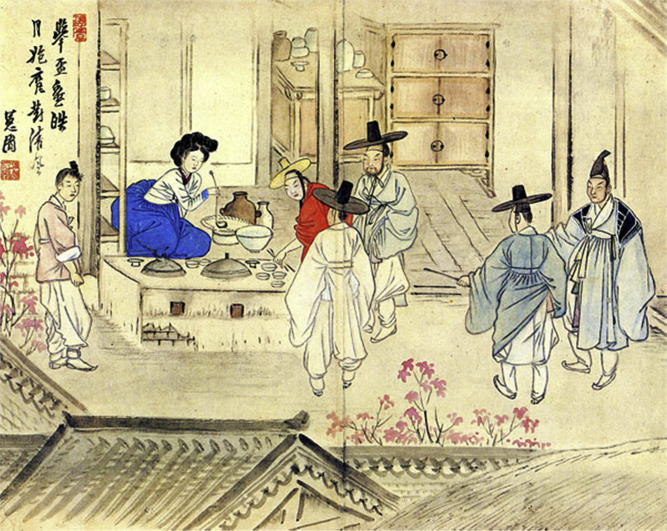 擧盃邀皓
月抱甕對清風
蕙園